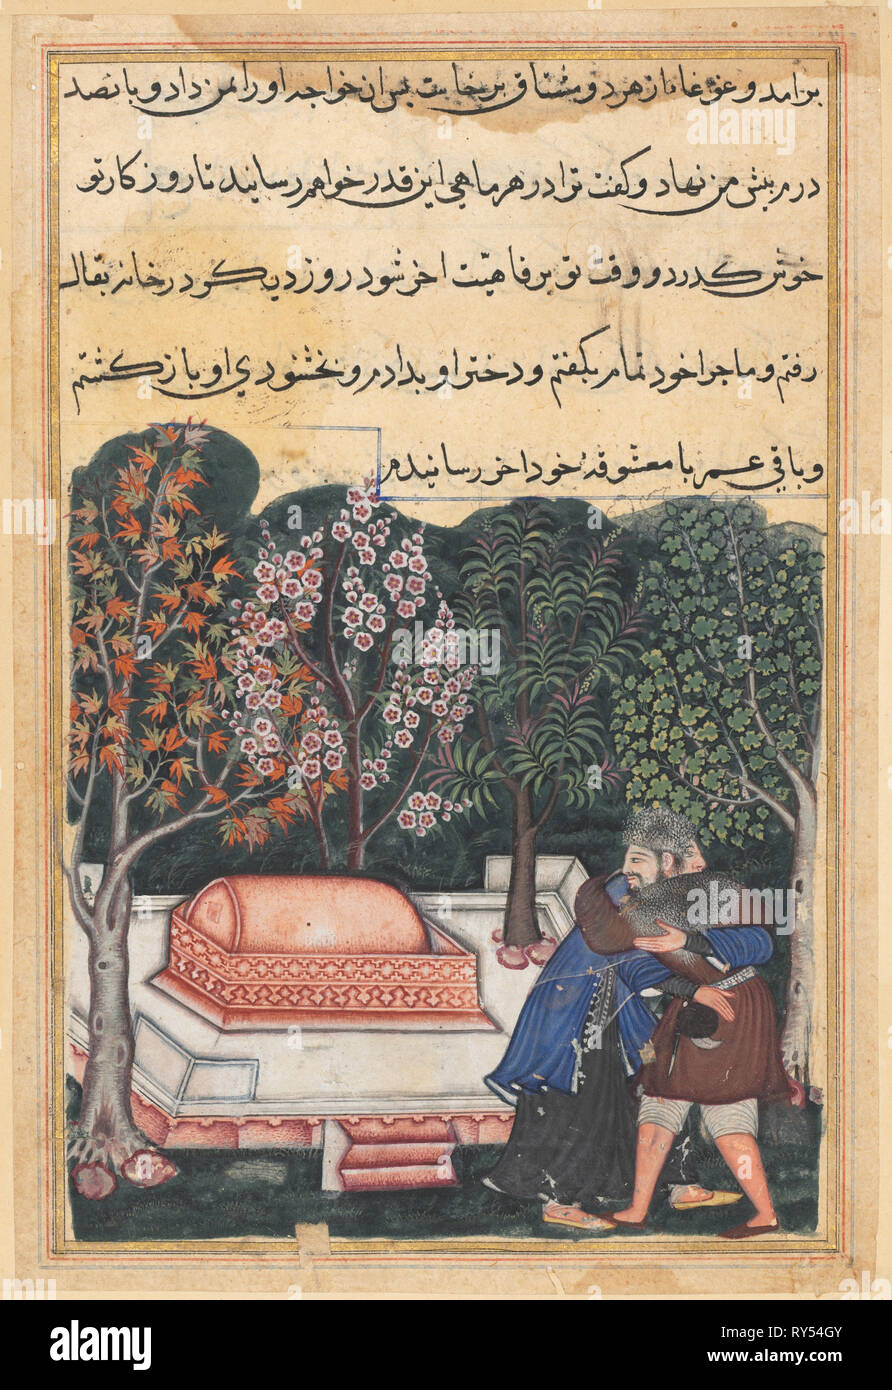 برامد و غوغا از هر دو مشتاق برخاست پس ان خواجه او را بمن داد و پانصد
درم پیش من نهاد و گفت ترا در هر ماهی این قدر خواهم رسانید تا روزکار تو
خوش گذرد و وقت تو برفاهیت اخر شود روز دیگر در خانه بقال
رفتم و ماجرا خود تمام بگفتم و دختر او بدادم و بخشنودی او باز گشتم
و باقی عمر با معشوقهٔ خود اخر رسانیدم
alamy
alamy
Image ID: RY54GY
www.alamy.com